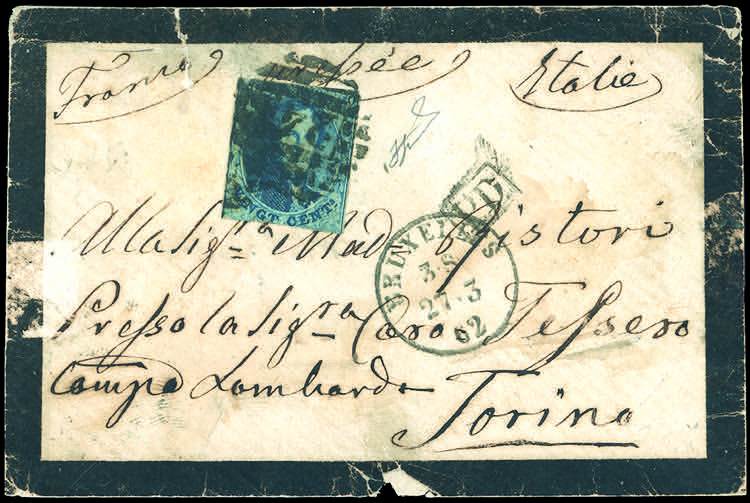 Franca Italie
VINGT CENTS
PD
BRUXELLES
3 S
27 · 3
62
Alla Sig.ra Mad. Ristori
Presso la Sig.ra Caro. Tessero
Comp.a Lombarda
Torino